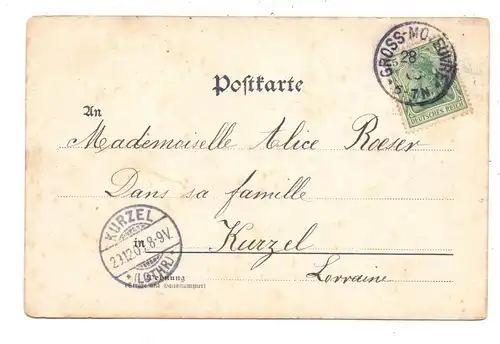 GROSS-MOYEUVRE
28
5-7N
DEUTSCHES REICH
Postkarte
An
Mademoiselle Alice Roeser
Dans sa famille
in Kurzel
Lorraine
KURZEL
8-9V.
* (LOTHR) *
Wohnung
(Straße und Hausnummer)